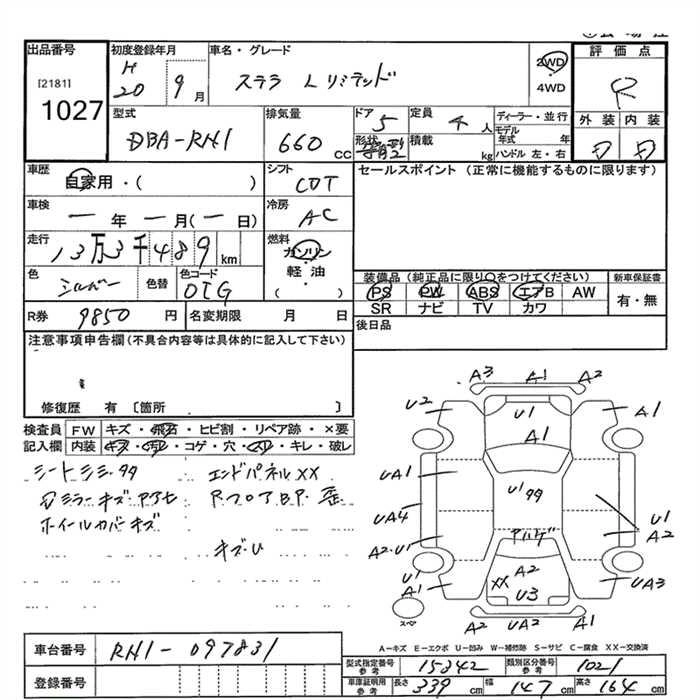 出品番号
[2181]
1027
初度登録年月
H
20 9月
車名・グレード
ステラ L リミテッド
2WD
4WD
評価点
R
外装 内装
D D
型式
DBA-RN1
排気量
660 cc
ドア
5
定員
4 人
形状
箱型
積載
kg
ディーラー・並行
モデル
年式 年
ハンドル 左・右
車歴
自家用・( )
シフト
CVT
セールスポイント (正常に機能するものに限ります)
車検
ー年ー月(ー日)
冷房
AC
走行
13万3千489 km
燃料
ガソリン
軽・油
( )
色
シルバー
色替
色コード
装備品 (純正品に限り○をつけてください)
新車保証書
PS PW ABS エアB AW
SR ナビ TV カワ
有・無
R券 9850 円
名変期限 月 日
後日品
注意事項申告欄(不具合内容は具体的に記入して下さい)
修復歴 有 〔箇所 〕
検査員
記入欄
FW キズ・飛石・ヒビ割・リペア跡・×要
内装 キズ・汚れ・コゲ・穴・スリ・キレ・破レ
シートシミ・
ミラーキズ
ホイールカバーキズ
エンドパネルXX
RフロアB.P. 歪
キズ・U
A3 A1 A2
U2 U1 A1
A1
UA1
U1
UA4
A2・U1
U1
A2
U1
A1
XX A2
U3
UA3
スペア
A2 UA2 A1
A-キズ E-エクボ U-凹み W-補修跡 S-サビ C-腐食 XX-交換済
車台番号 RN1-097831
登録番号
型式指定番号
参考
15342
類別区分番号
参考
1021
車庫証明用
参考
長さ 339 cm 幅 147 cm 高さ 164 cm